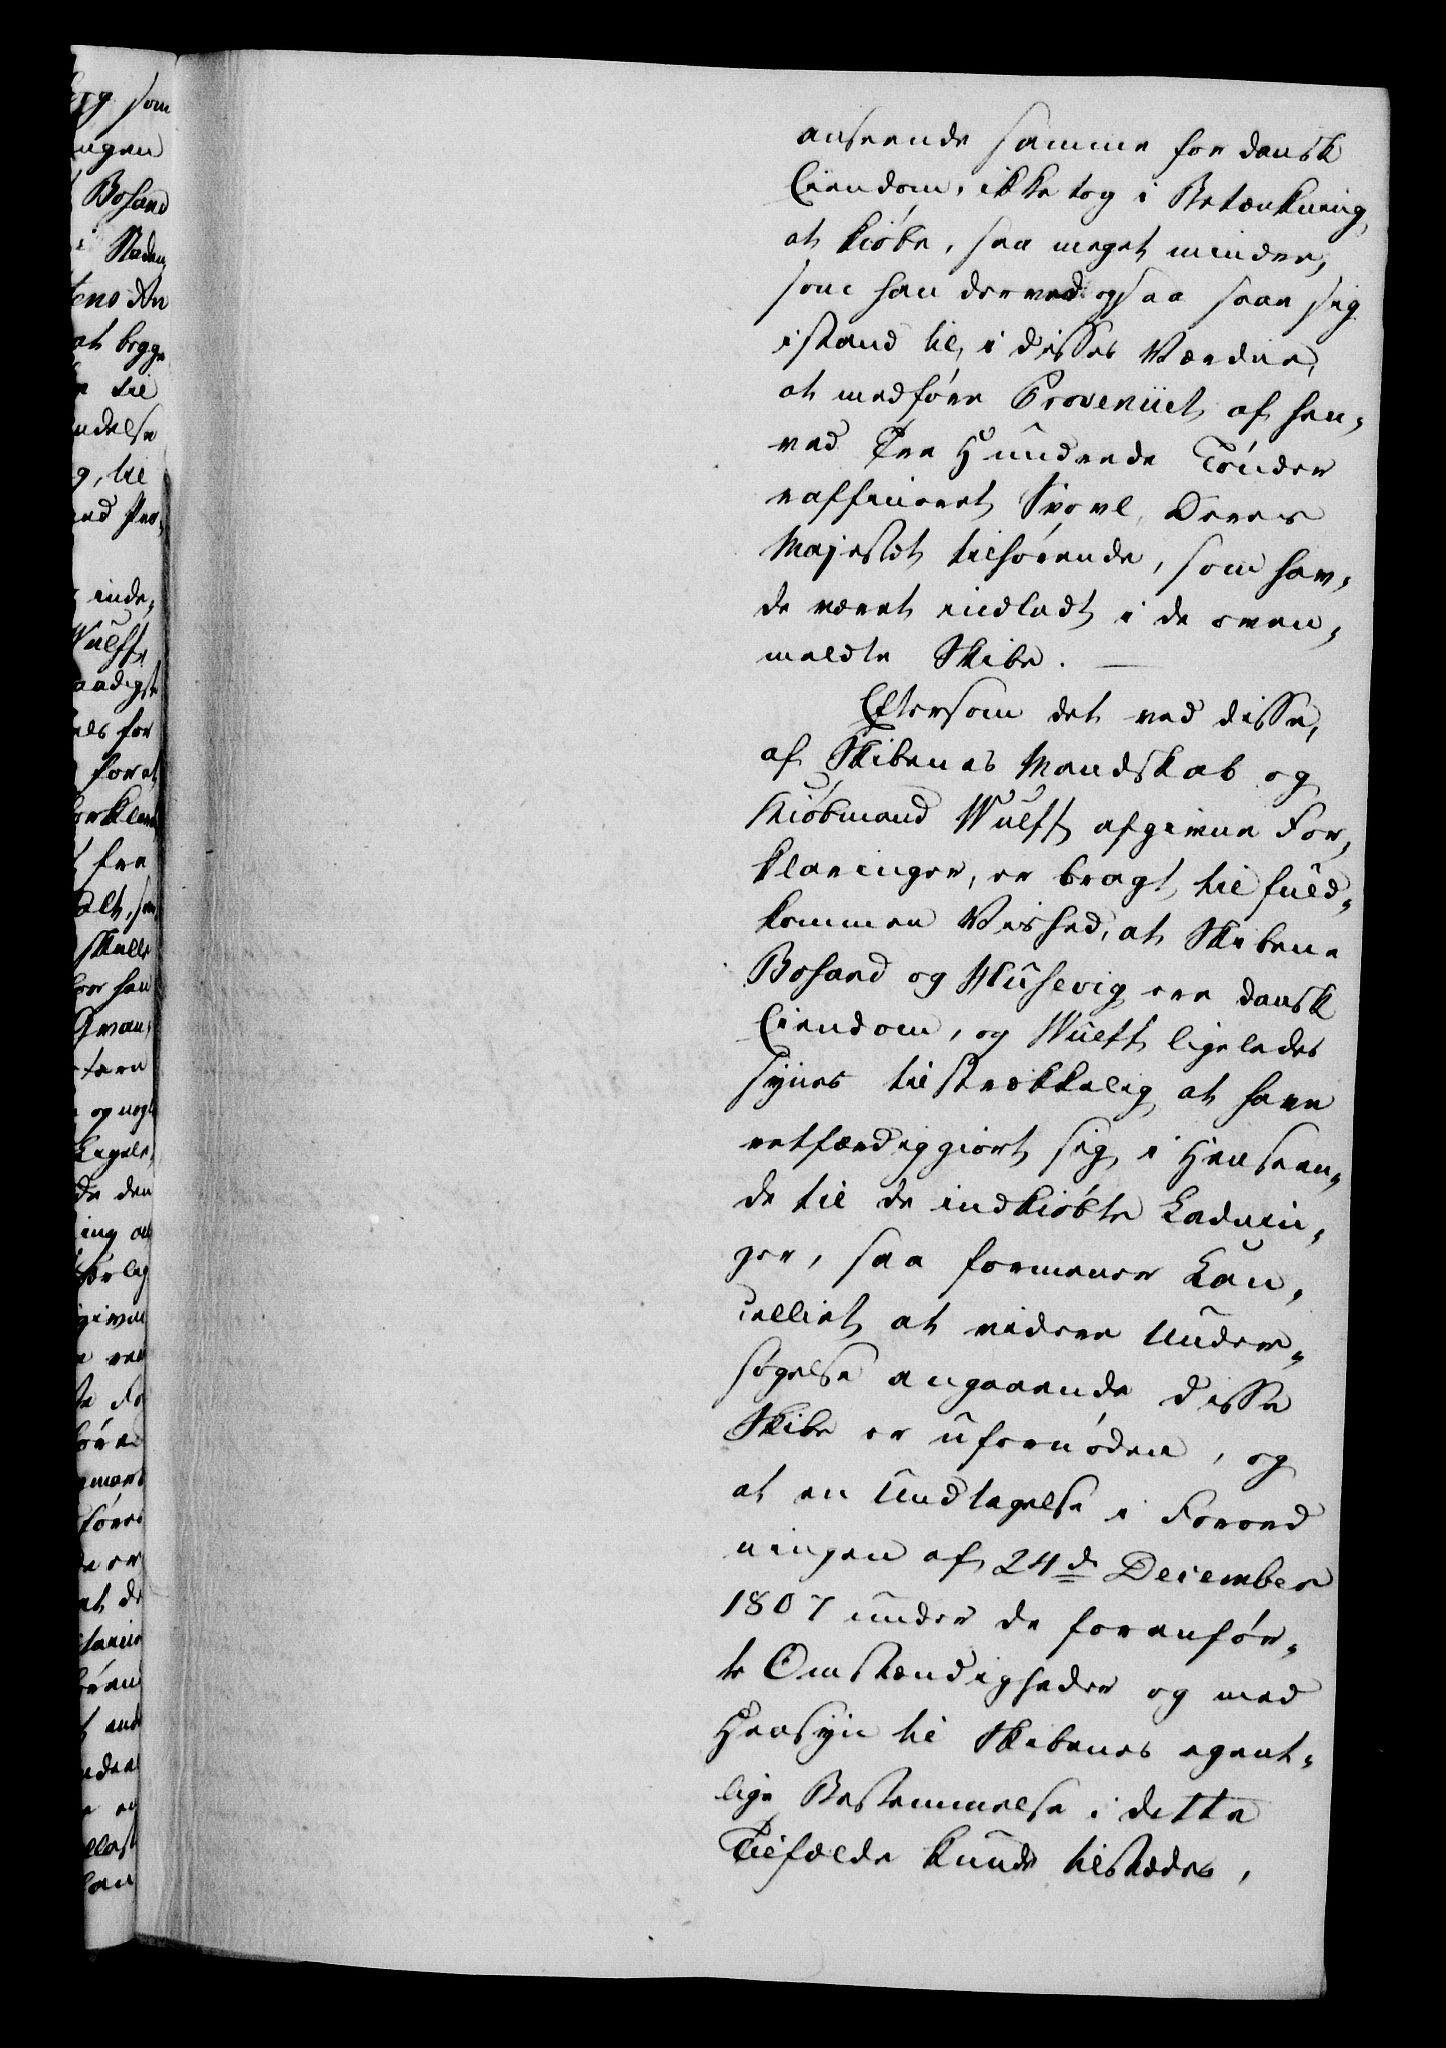 anseende samme for dansk
Eiendom, ikke tog i Betænkning
at kiöbe, saa meget mindre,
som han derved ogsaa saae sig
istand til, i disses Værdie,
at medföre Provenüet af hen-
ved Tre Hundrede Tönder
raffineret Svovl, Deres
Majestæt tilhörende, som hav-
de været indladt i de oven-
meldte Skibe. —
Eftersom det ved disse,
af Skibenes Mandskab og
Kiöbmand Wulff afgivne For-
klaringer, er bragt til fuld-
kommen Vished, at Skibene
Bosand og Husevig ere dansk
Eiendom, og Wulff ligeledes
synes tilstrækkelig at have
retfærdiggiort sig, i Henseen-
de til de indkiöbte Ladnin-
ger, saa formener Can-
celliet at videre Under-
sögelse angaaende disse
Skibe er ufornöden, og
at en Undtagelse i Forord
ningen af 24de December
1807 under de foranför-
te Omstændigheder og med
Hensyn til Skibenes egent-
lige Bestemmelse i dette
Tilfælde kunde tilstædes,